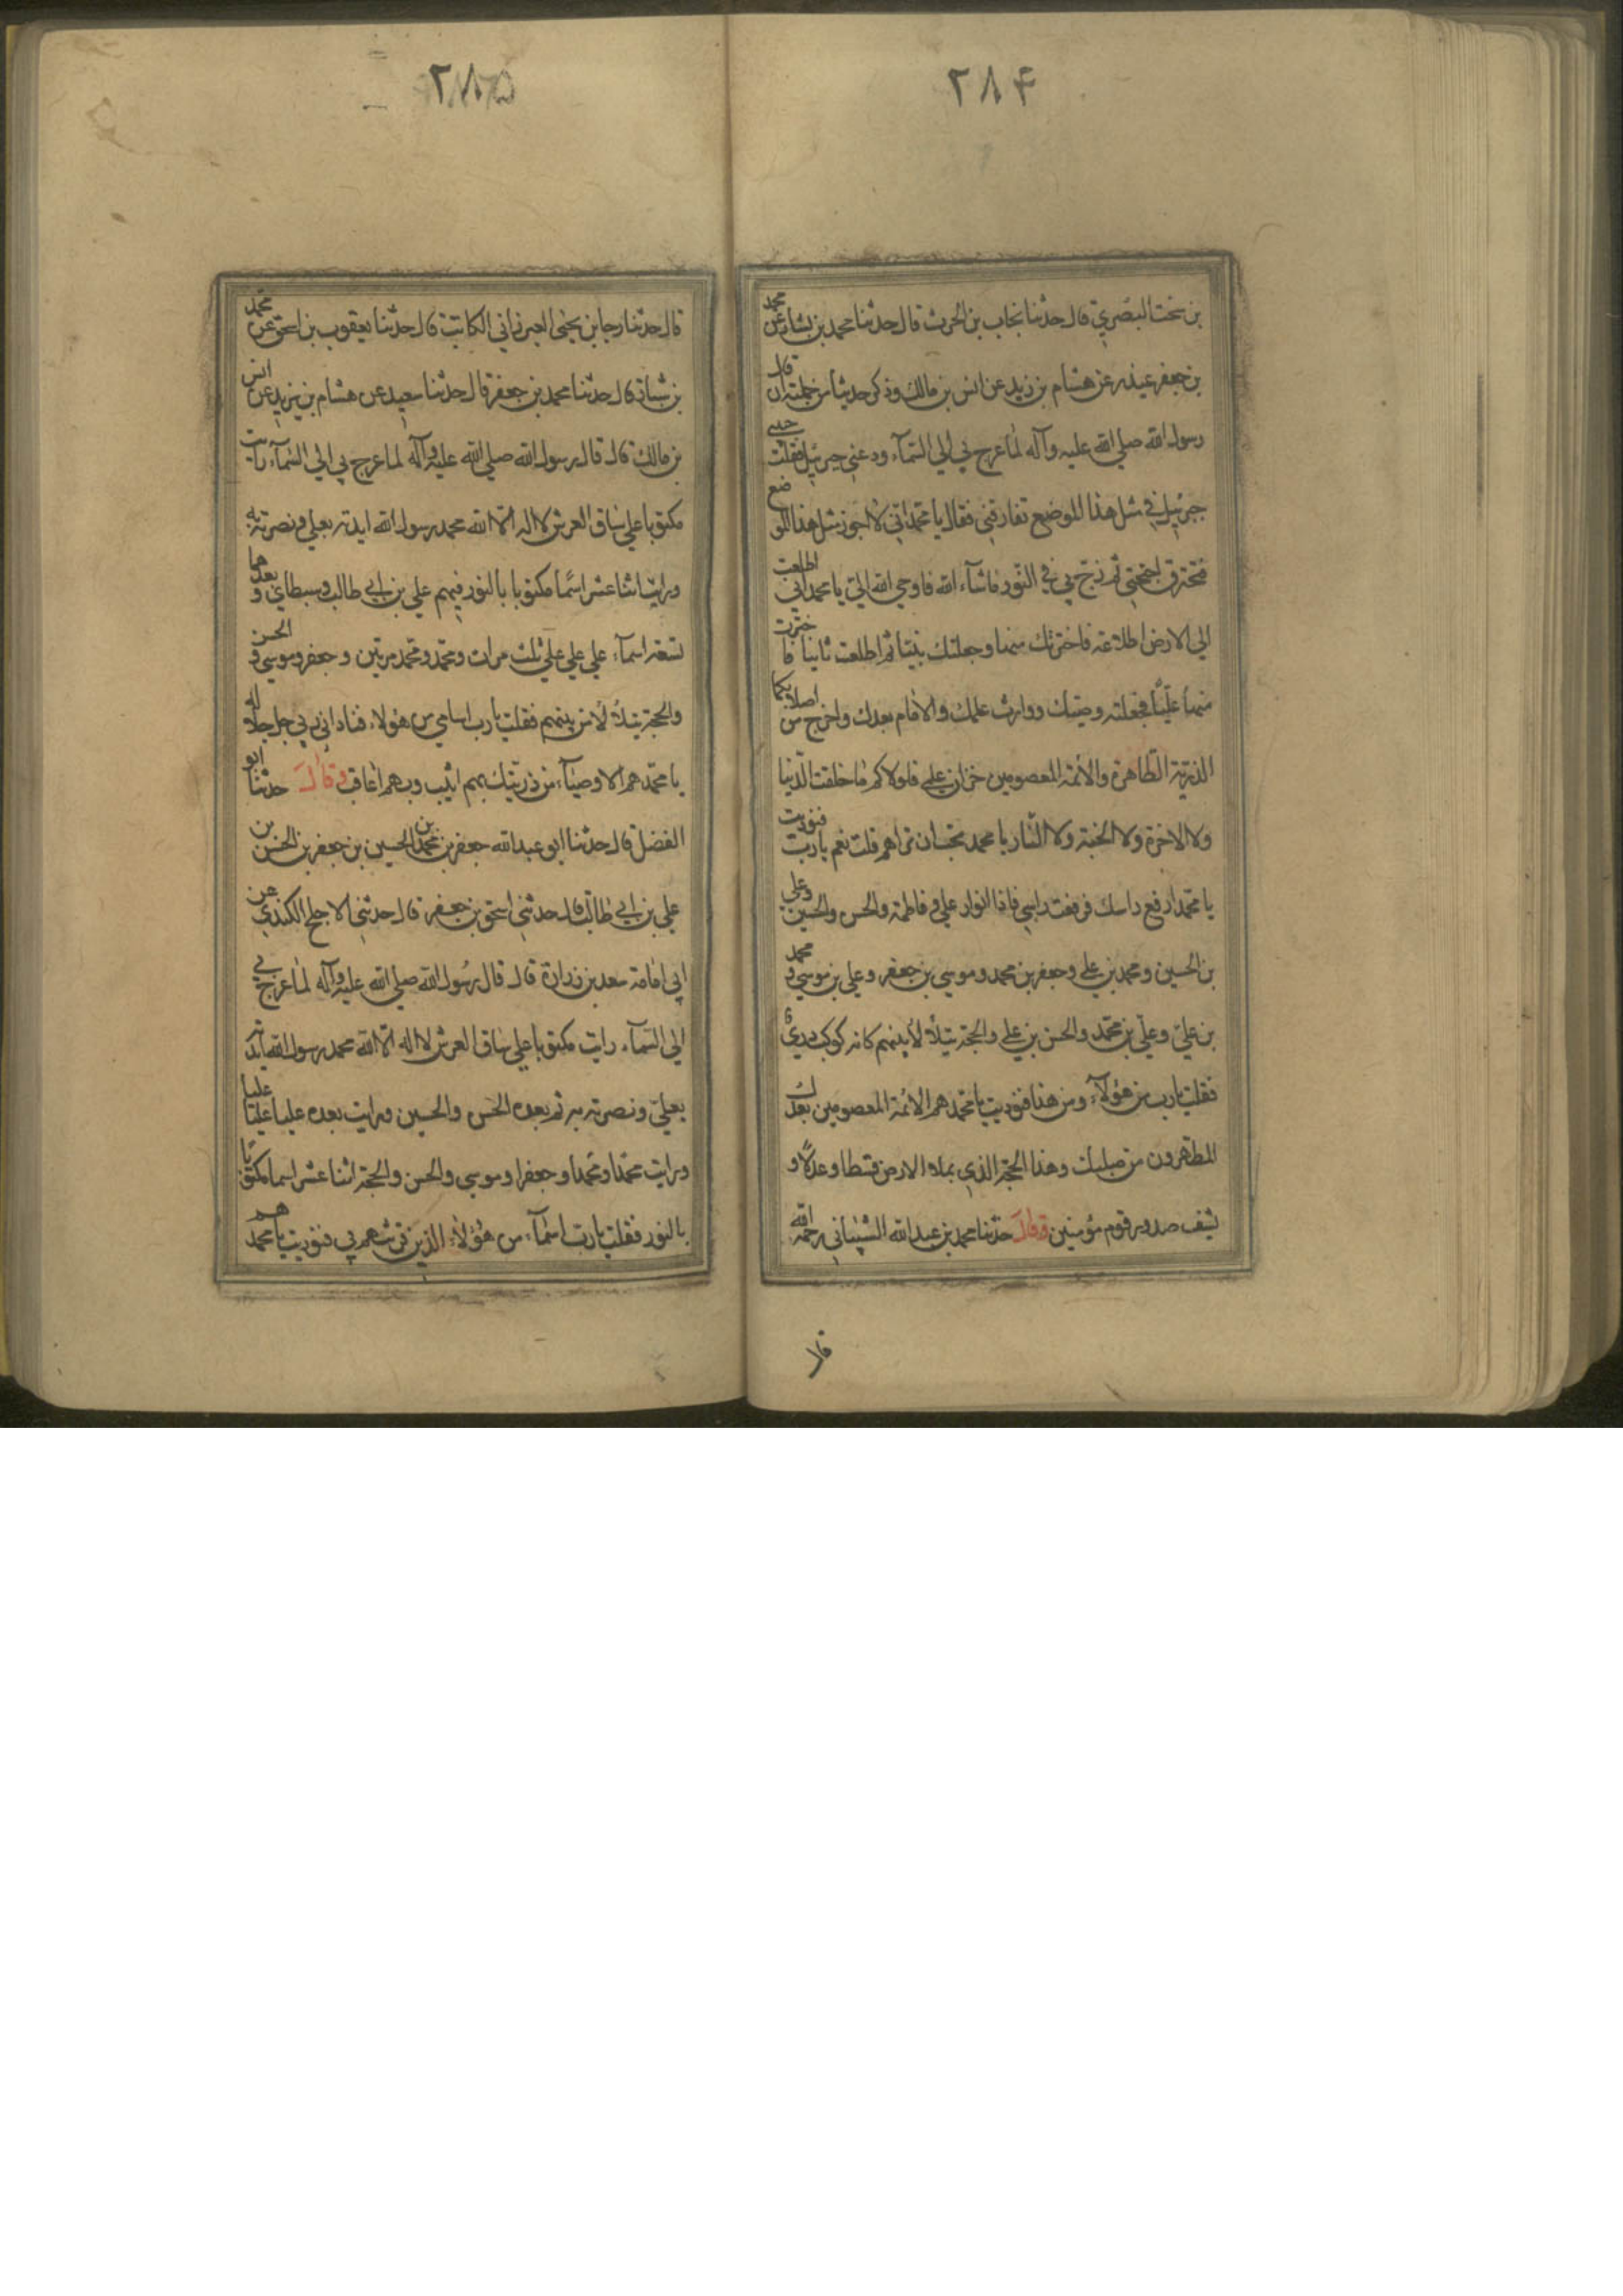 ٢٨۴
بن سخت البصري قال حدثنا نجاب بن الحرث قال حدثنا محمد بن بشار عن محمد
بن جعفر عن هشام بن زيد عن انس بن مالك وذكر حديثا من جملته ان قال
رسول الله صلي الله عليه وآله لما عرج بي الي السمآء ودعني جبرئيل فقلت حبيبي
جبرئيل في مثل هذا الموضع تفارقني فقال يا محمد اني لا اجوز مثل هذا الموضع
فتحترق اجنحتي ثم زج بي في النور ماشآء الله فاوحي الله الي يا محمد اني اطلعت
الي الارض اطلاعة فاخترتك منها وجعلتك نبيا ثم اطلعت ثانيا فاخترت
منها عليا فجعلته وصيك ووارث علمك والامام بعدك واخرج من اصلابكما
الذرية الطاهرة والائمة المعصومين خزان علمي فلولاكم ما خلقت الدنيا
ولا الاخرة ولا الجنة ولا النار يا محمد تحب ان تراهم قلت نعم يا رب فنوديت
يا محمد ارفع راسك فرفعت راسي فاذا انوار علي و فاطمة والحسن والحسين وعلي
بن الحسين ومحمد بن علي وجعفر بن محمد وموسي بن جعفر وعلي بن موسي و محمد
بن علي وعلي بن محمد والحسن بن علي والحجة يتلألأ بينهم كانه كوكب دري
فقلت يا رب من هؤلآء ومن هذا فنوديت يا محمد هم الائمة المعصومين بعدك
المطهرون من صلبك وهذا الحجة الذي يملاء الارض قسطا وعدلا و
يشف صدور قوم مؤمنين وقال حدثنا محمد بن عبد الله الشيباني رحمه الله
قال
٢٨۵
قال حدثنا رجا بن يحيى العبرتاني الكاتب قال حدثنا يعقوب بن اسحق عن محمد
بن بشار قال حدثنا محمد بن جعفر قال حدثنا سعيد عن هشام بن يزيد عن انس
بن مالك قال قال رسول الله صلي الله عليه وآله لما عرج بي الي السمآء رايت
مكتوبا علي ساق العرش لا اله الا الله محمد رسول الله ايدته بعلي ونصرته به
ورايت اثنا عشر اسما مكتوبا بالنور فيهم علي بن ابي طالب وسبطاي و بعدهما
تسعة اسمآء علي علي علي ثلث مرات ومحمد ومحمد مرتين وجعفر وموسي و الحسن
والحجة يتلألأ من بينهم فقلت يا رب اسامي من هؤلاء فناداني ربي جل جلاله
يا محمد هم الاوصيآء من ذريتك بهم اثيب وبهم اعاقب وقال حدثنا ابو
الفضل قال حدثنا ابو عبد الله جعفر بن محمد بن الحسين بن جعفر بن الحسن بن
علي بن ابي طالب قال حدثني اسحق بن جعفر قال حدثني الاجلح الكندي عن
ابي امامة سعد بن زرارة قال قال رسول الله صلي الله عليه وآله لما عرج بي
الي السمآء رايت مكتوبا علي ساق العرش لا اله الا الله محمد رسول الله ايدته
بعلي ونصرته به ثم بعده الحسن والحسين ورايت بعده عليا عليا عليا
ورايت محمدا ومحمدا وجعفرا وموسي والحسن والحجة اثنا عشر اسما مكتوبا
بالنور فقلت يا رب اسمآء من هؤلاء الذين قرنتهم بي فنوديت يا محمد هم